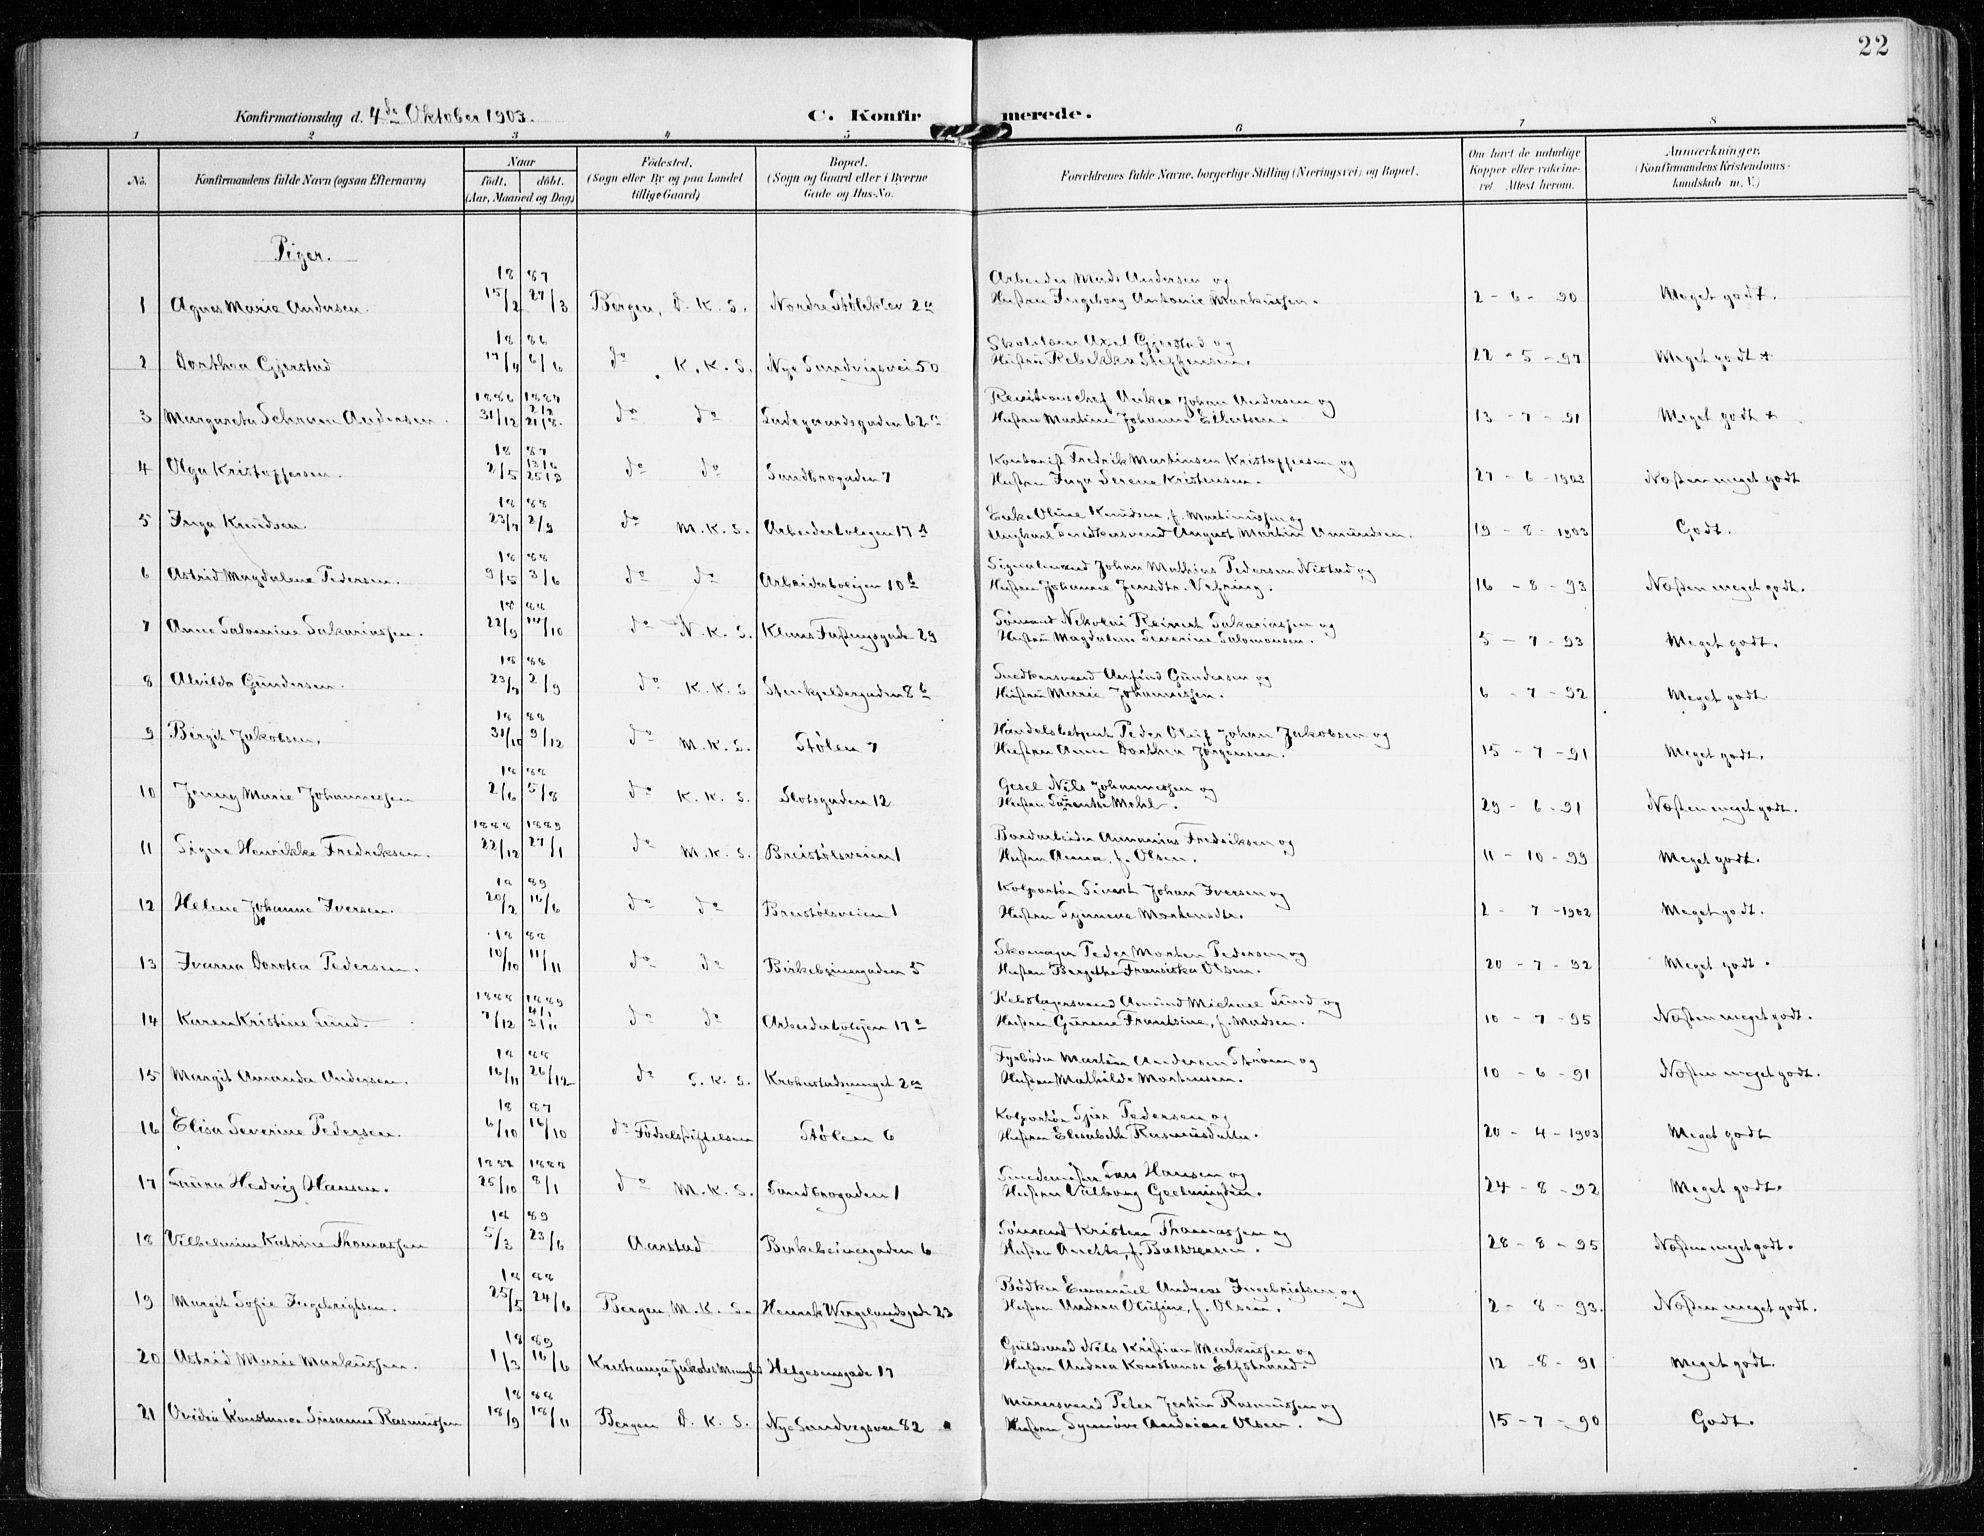 22
Konfirmationsdag d. 4de Oktober 1903.
C. Konfirmerede.
1 2 3 4 5 6 7 8
No. Konfirmandens fulde Navn (ogsaa Efternavn) Naar født. døbt. (Aar, Maaned og Dag) Fødested. (Sogn eller By og paa Landet tillige Gaard) Bopæl. (Sogn og Gaard eller i Byerne Gade og Hus-No. Forældrenes fulde Navne, borgerlige Stilling (Næringsvei) og Bopæl. Om havt de naturlige Kopper eller vakcineret Attest herom. Anmærkninger. (Konfirmandens Kristendomskundskab m. V.)
Piger.
18 87 Arbeider Mads Andersen og
1 Agnes Marie Andersen. 15/2 27/3 Bergen, D. K. S. Nordre Støleklev 2a Hustru Ingeborg Antonie Markussen. 2-6-90 Meget godt.
18 86 Skolelærer Axel Gjerstad og
2 Dorthea Gjerstad 17/4 6/6 do K. K. S. Nye Sandvigsvei 50 Hustru Rebekka Steffensen. 22-5-97 Meget godt +
1886 1887 Revisionschef Anker Johan Andersen og
3 Margareta Schram Andersen. 31/12 2/2 21/8. do do Ladegaardsgaden 62 Hustru Martine Johanne Ellertsen. 13-7-91 Meget godt +
18 87 Kontorist Fredrik Martinsen Kristoffersen og
4 Olga Kristoffersen. 2/5 13/6 25/3 do do Sandbrogaden 7 Hustru Inga Serena Kristensen. 27-6-1903 Næsten meget godt
18 88 Enke Oline Knudsen, f. Martinussen og
5 Inga Knudsen. 23/7 2/9 do M. K. S. Arbeiderboligen 17 A Ungkarl Snedkersvend August Martin Amundsen. 19-8-1903 Godt.
18 88 Signalmand Johan Mathias Pedersen Nistad og
6 Astrid Magdalene Pedersen. 9/5 3/6 do do Arbeiderboligen 10 b Hustru Johanne Jensdtr. Vefring. 16-8-93 Næsten meget godt.
18 88 Sømand Nikolai Reinert Sakariassen og
7 Anne Salomine Sakariassen. 22/9 14/10 do N. K. S. Klaus Fastingsgade 29 Hustru Magdalene Severine Salomonsen. 5-7-93 Meget godt.
18 88 Snedkersvend Anfind Gundersen og
8 Alvilda Gundersen. 23/7 2/9 do K. K. S Stenkjeldergaden 8 b Hustru Marie Johannessen. 6-7-92 Meget godt
18 88 Handelsbetjent Peder Oluf Johan Jakobsen og
9 Birgit Jakobsen. 31/10 9/12 do M. K. S. Stølen 7 Hustru Anna Dorthea Jørgensen. 15-7-91 Meget godt.
18 88 Gesel Nils Johannessen og
10 Jenny Marie Johannessen 2/6 5/8 do K. K. S. Slotsgaden 12 Hustru Mehl. 29-6-91 Næsten meget godt.
1888 1889 Bordarbeider Ananias Fredriksen og
11 Signe Henrikke Fredriksen. 22/12 27/1 do M. K. S. Breistølsveien 1 Hustru Anna, f. Olsen. 11-10-99 Meget godt.
18 89 Kolportør Sivert Johan Iversen og
12 Helene Johanne Iversen. 20/2 16/6 do do Breistølsveien 1 Hustru Synneva Mortensdtr. 2-7-1902 Meget godt.
18 88 Skomager Peder Morten Pedersen og
13 Ivarna Dorotea Pedersen. 10/10 11/11 do do Birkebeinergaden 5 Hustru Bergithe Fransiska Olsen. 20-7-92 Meget godt.
1888 1889 Rebslagersvend Amund Michael Lund og
14 Karen Kristine Lund. 7/12 4/1 3/11 do do Arbeiderboligen 17 c Hustru Gurene Frantsine, f. Madsen. 10-7-95 Næsten meget godt.
18 88 Fyrbøder Martin Andersen Strøm og
15 Margit Amanda Andersen. 16/11 26/12 do S. K. S. Krohnstadsmuget 2a Hustru Mathilde Martinsen. 10-6-91 Næsten meget godt.
18 87 Kolportør Sjur Pedersen og
16 Elisa Severine Pedersen. 6/10 16/10 do Fødselsstiftelsen Stølen 6 Hustru Elisabeth Rasmusdatter. 20-4-1903 Meget godt
1888 Smedemester Lars Hansen og
17 Laura Hedvig Hansen. 25/10 8/1 do M. K. S. Sandbrogaden 1 Hustru Valborg Geelmuyden. 24-8-92 Meget godt.
18 89 Sømand Kristen Thomassen og
18 Vilhelmine Katrine Thomassen 5/3 23/6 Aarstad Birkebeinergaden 6 Hustru Anette, f. Baltzersen. 28-8-95 Næsten meget godt.
18 88 Bødker Emanuel Andreas Ingebrigtsen og
19 Margit Sofie Ingebrigtsen. 25/5 24/6 Bergen M. K. S. Henrik Wergelandsgade 23 Hustru Andrea Olufine, f. Olsen. 2-8-93. Næsten meget godt.
18 89 Guldsmed Nils Kristian Markussen og
20 Astrid Marie Markussen. 1/3 16/6 Kristiania, Jakobs Menighed Helgesensgade 17 Hustru Andrea Konstanse Elfstrand. 12-8-91 Meget godt.
18 88 Murersvend Peter Jentin Rasmussen og
21 Ovidia Konstanse Susanne Rasmussen 18/9 18/11 Bergen D. K. S. Nye Sandvigsvei 82 Hustru Synnøve Olsen. 15-7-90 Godt.